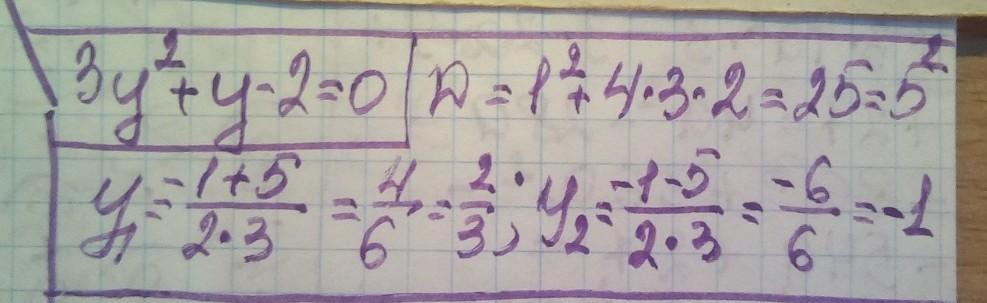 3y²+y-2=0 D=1²+4·3·2=25=5²
y₁=\frac{-1+5}{2·3}=\frac{4}{6}=\frac{2}{3}; y₂=\frac{-1-5}{2·3}=\frac{-6}{6}=-1